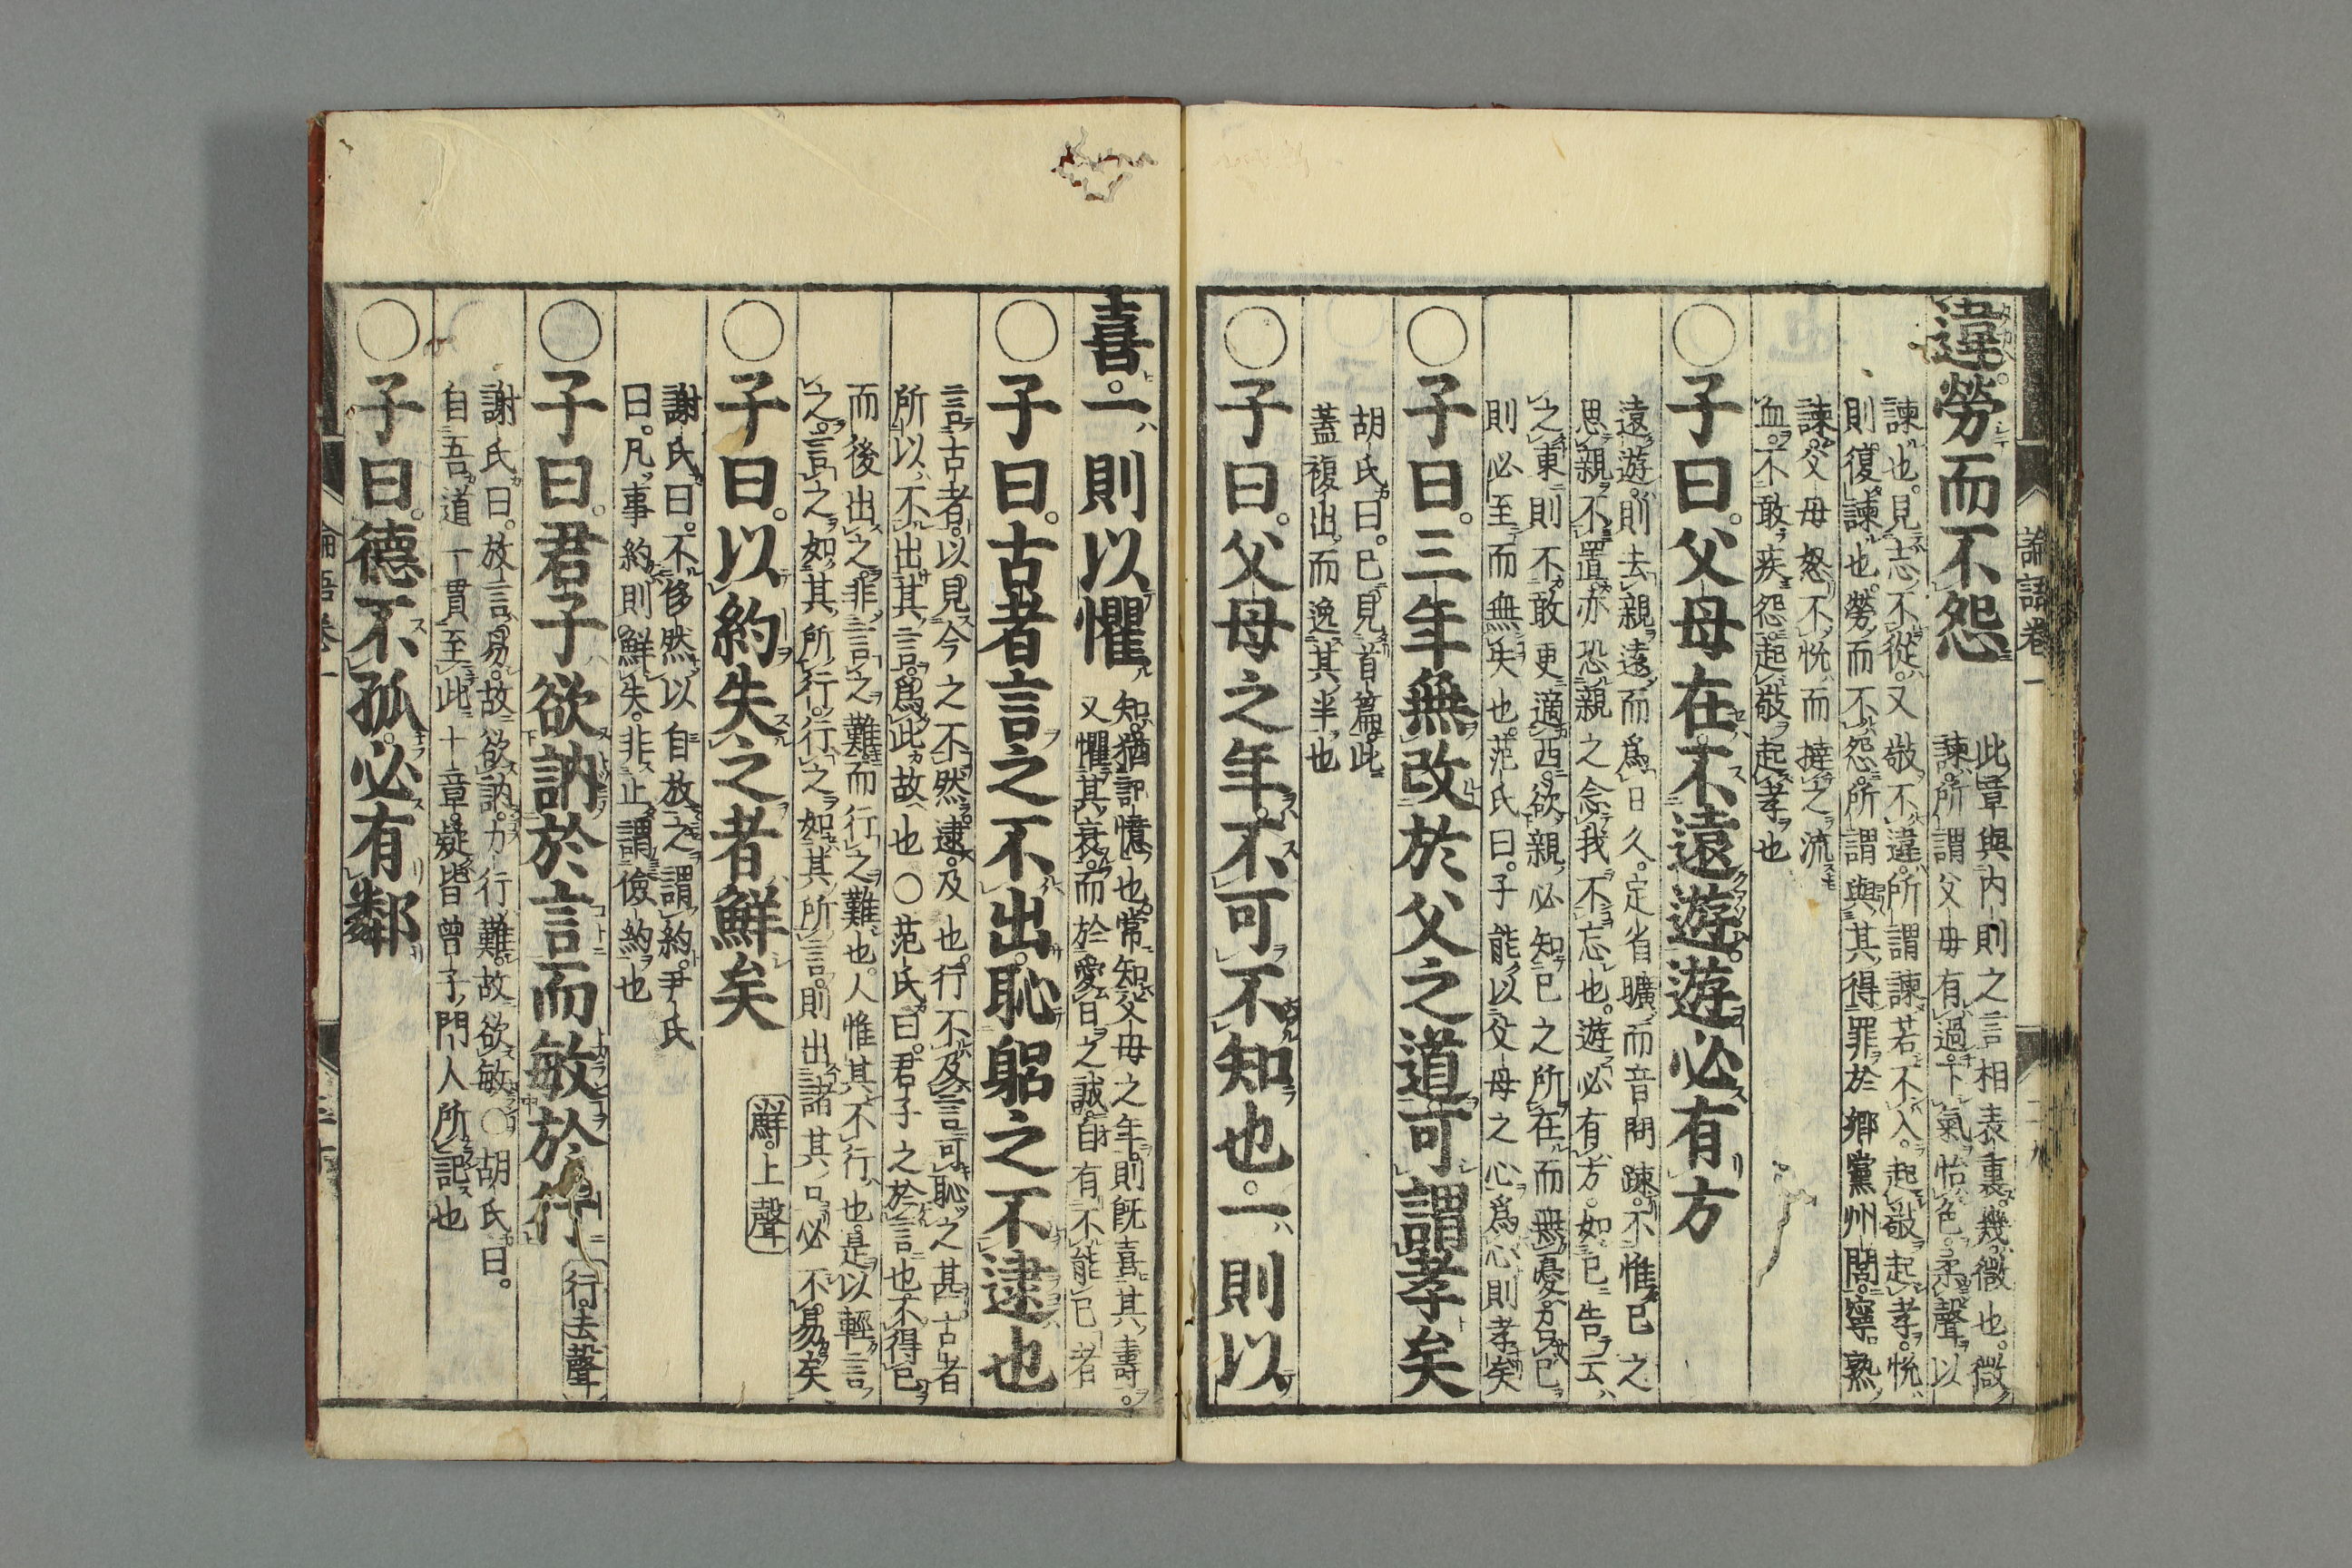 論語卷一
違勞而不怨
此章與內則之言相表裏幾微也微
諫所謂父母有過下氣怡色柔聲以
諫也見志不從又敬不違所謂諫若不入起敬起孝悅
則復諫也勞而不怨所謂與其得罪於鄉黨州閭寧熟
諫父母怒不悅而撻之流
血不敢疾怨起敬起孝也
○子曰父母在不遠遊遊必有方
遠遊則去親遠而爲日久定省曠而音問踈不惟已之
思親不置亦恐親之念我不忘也遊必有方如已告云
之東則不敢更適西欲親必知已之所在而無憂召已
則必至而無失也范氏曰子能以父母之心爲心則孝矣
○子曰三年無改於父之道可謂孝矣
胡氏曰已見首篇此
蓋複出而逸其半也
○子曰父母之年不可不知也一則以
喜一則以懼
知猶記憶也常知父母之年則旣喜其壽
又懼其衰而於愛日之誠自有不能已者
○子曰古者言之不出恥躳之不逮也
言古者以見今之不然逮及也行不及言可恥之甚古者
所以不出其言爲此故也○范氏曰君子之於言也不得已
而後出之非言之難而行之難也人惟其不行也是以輕言
之言之如其所行行之如其所言則出諸其口必不易矣
○子曰以約失之者鮮矣
鮮上聲
謝氏曰不侈然以自放之謂約尹氏
曰凡事約則鮮失非止謂儉約也
○子曰君子欲訥於言而敏於行
行去聲
謝氏曰放言易故欲訥力行難故欲敏○胡氏曰
自吾道一貫至此十章疑皆曾子門人所記也
○子曰德不孤必有鄰
論語卷一